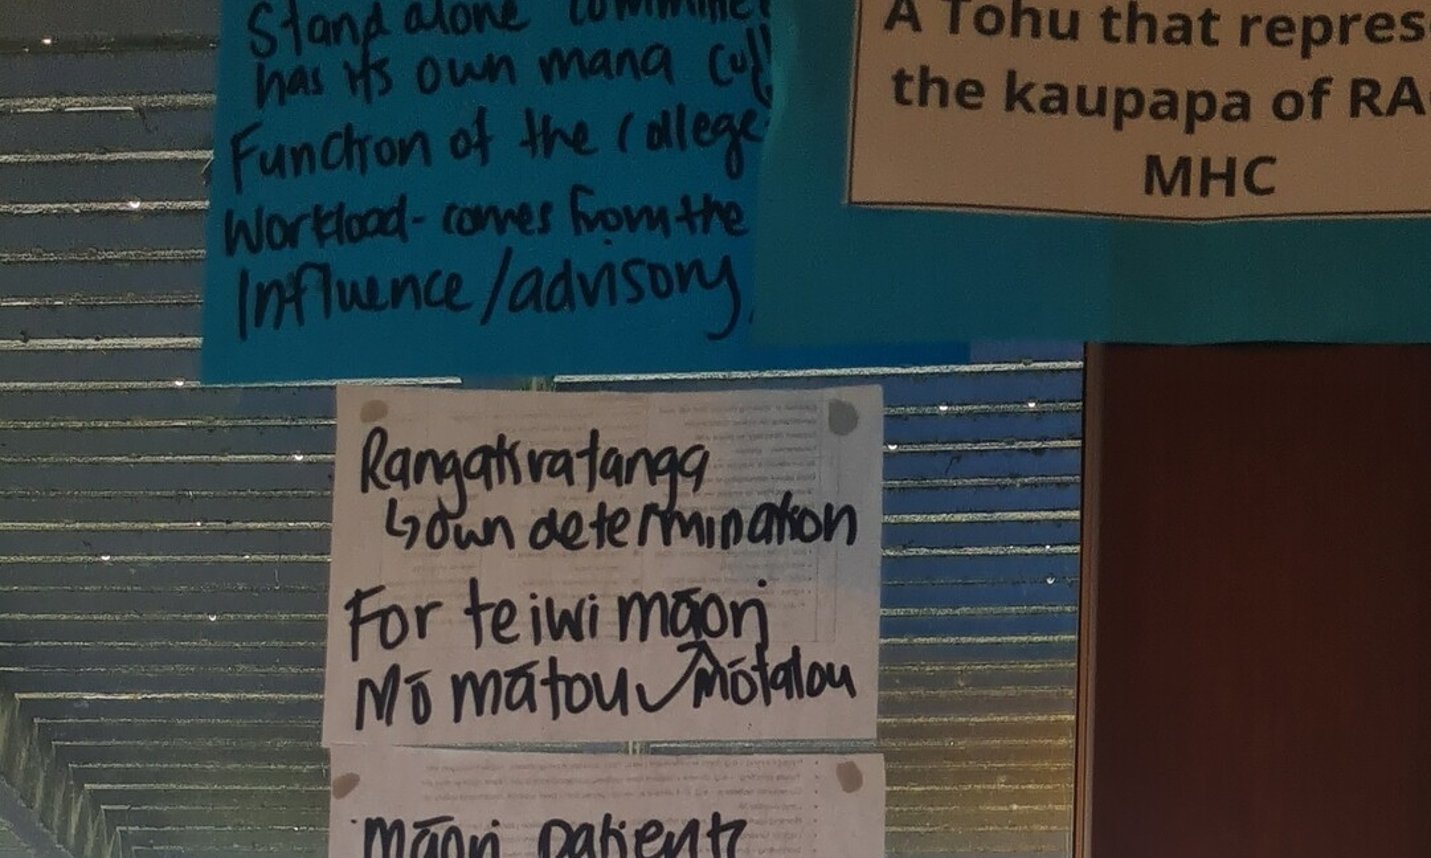 Stand alone committee
has its own mana
Function of the College
Workload - comes from the
Influence/advisory
A Tohu that repres
the kaupapa of RA
MHC
Rangatiratanga
↳ own determination
For te iwi māori
Mō mātou ✓ mōtatou
māori patients